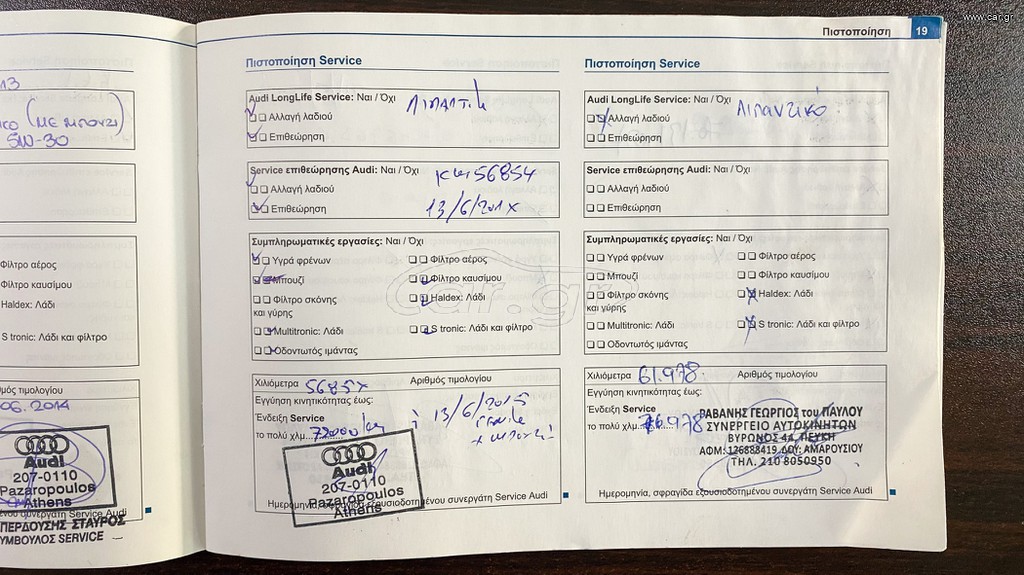 www.car.gr
Πιστοποίηση 19
13
(ΜΕ ΜΠΟΥΖΙ)
5W-30
Φίλτρο αέρος
Φίλτρο καυσίμου
Haldex: Λάδι
S tronic: Λάδι και φίλτρο
06. 2014
Audi
207-0110
Pazaropoulos
Athens
ΠΕΡΔΟΥΣΗΣ ΣΤΑΥΡΟΣ
ΥΜΒΟΥΛΟΣ SERVICE
Πιστοποίηση Service
Audi LongLife Service: Ναι / Όχι
Αλλαγή λαδιού
Επιθεώρηση
Service επιθεώρησης Audi: Ναι / Όχι
56854
Αλλαγή λαδιού
Επιθεώρηση
13/6/201
Συμπληρωματικές εργασίες: Ναι / Όχι
Υγρά φρένων Φίλτρο αέρος
Μπουζί Φίλτρο καυσίμου
Φίλτρο σκόνης Haldex: Λάδι
και γύρης
Multitronic: Λάδι S tronic: Λάδι και φίλτρο
Οδοντωτός ιμάντας
car.gr
Χιλιόμετρα Αριθμός τιμολογίου
Εγγύηση κινητικότητας έως:
Ένδειξη Service 13/6/2015
το πολύ χλμ.
Audi
207-0110
Pazaropoulos
Athens
Ημερομηνία, σφραγίδα εξουσιοδοτημένου συνεργάτη Service Audi
Πιστοποίηση Service
Audi LongLife Service: Ναι / Όχι Λιπαντικό
Αλλαγή λαδιού
Επιθεώρηση
Service επιθεώρησης Audi: Ναι / Όχι
Αλλαγή λαδιού
Επιθεώρηση
Συμπληρωματικές εργασίες: Ναι / Όχι
Υγρά φρένων Φίλτρο αέρος
Μπουζί Φίλτρο καυσίμου
Φίλτρο σκόνης Haldex: Λάδι
και γύρης
Multitronic: Λάδι S tronic: Λάδι και φίλτρο
Οδοντωτός ιμάντας
Χιλιόμετρα 61.978 Αριθμός τιμολογίου
Εγγύηση κινητικότητας έως:
Ένδειξη Service
το πολύ χλμ. 76.978
ΡΑΒΑΝΗΣ ΓΕΩΡΓΙΟΣ του ΠΑΥΛΟΥ
ΣΥΝΕΡΓΕΙΟ ΑΥΤΟΚΙΝΗΤΩΝ
ΒΥΡΩΝΟΣ 44, ΠΕΥΚΗ
ΑΦΜ: 126888419 ΔΟΥ: ΑΜΑΡΟΥΣΙΟΥ
ΤΗΛ. 210 8050950
Ημερομηνία, σφραγίδα εξουσιοδοτημένου συνεργάτη Service Audi